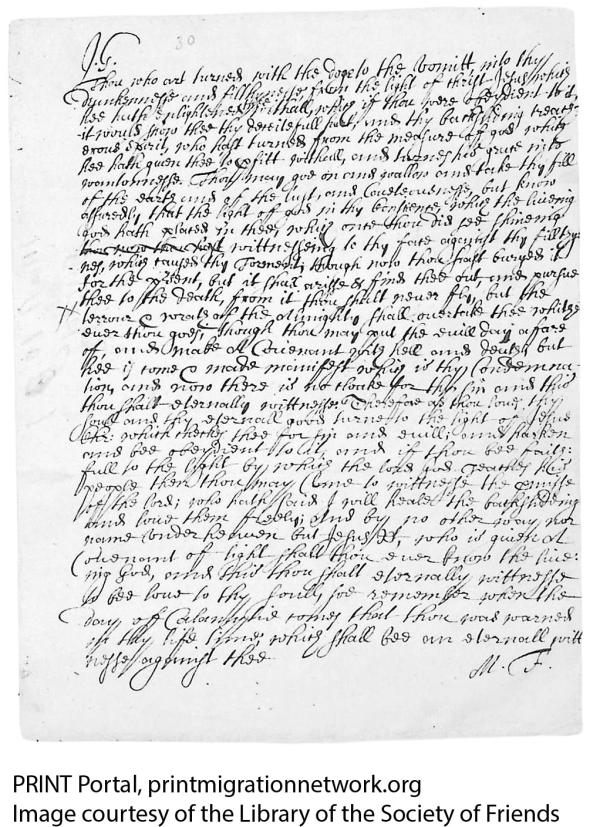 30
J. G.
Thou who art turned with the dogge to the vomitt, into thy
drunkennesse and filthynesse from the light of christ Jesus which
hee hath enlightened thee withall, which if thou were obedient to it,
it would show thee thy deceitefull hart, and thy backsliding treach-
erous spirit, who hast turned from the measure of god which
hee hath given thee to profitt withall, and turnes his grace into
wantonnesse. Thou may goe on and wallow and take thy fill
of the earth and of the lust, and Coveteousnesse, but know
assuredly that the light off god in thy Conscience which the liveing
god hath placed in thee, which once thou did see shineing
wittnesseing to thy face against thy filthy-
nes, which caused thy Torment; though now thou hast buryed it
for the present, but it shall arisse & find thee out, and pursue
thee to the death, from it thou shall never fly, but the
terrour & wrath of the almighty shall overtake thee whither
ever thou goes, Though thou may put the evill day a farre
of, and make A Covenant with hell and death, but
hee is come & made manifest which is thy Condemna-
tion, and now there is no cloake for thy sin and this
thou shall eternally wittnesse; Therefore as thou loves thy
soule and thy eternall good turne to the light of Jesus
chr: which checks thee for sin and evill; and harken
and bee obeydient to it, and if thou bee faith:
full to the light by which the lord god teaches his
people then thou may Come to wittnesse the promise
off the lord; who hath said I will heale the backslideing
and love them freely; and by no other way nor
name under heaven but Jesus, who is given A
Covenant of light shall thou ever know the live:
ing God, and this thou shall eternally wittnesse
to bee love to thy soule, soe remember when the
day off Calamytie comes that thou was warned
in thy life time, which shall bee an eternall witt
nesse against thee
M. F.
PRINT Portal, printmigrationnetwork.org
Image courtesy of the Library of the Society of Friends